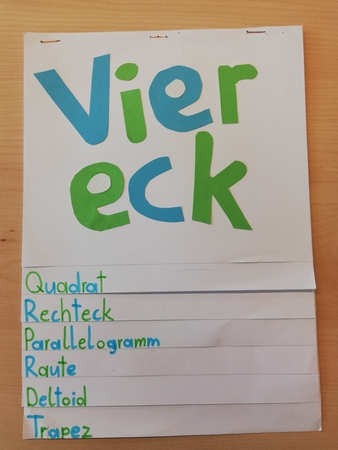 Vier
eck
Quadrat
Rechteck
Parallelogramm
Raute
Deltoid
Trapez